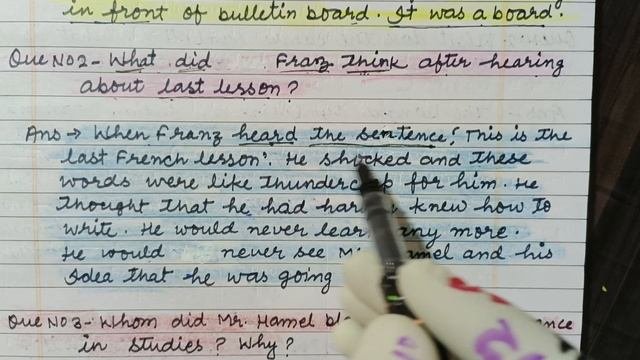 in front of bulletin board. It was a board.
Que No 2 - What did Franz Think after hearing
about last lesson?
Ans → When Franz heard the sentence, 'This is the
last French lesson'. He shocked and these
words were like Thunderclap for him. He
Thought That he had knew how To
write. He would never any more.
He would never see and his
Idea that he was going
Que No 3 - Whom did Mr. Hamel
in studies? Why?